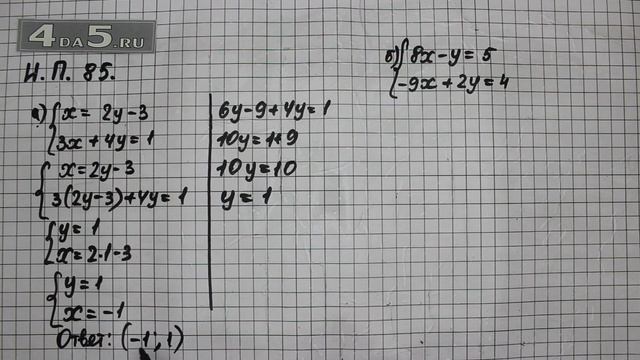 4DA5.RU
Н.П. 85.
а) { x = 2y-3
3x + 4y = 1
{ x = 2y-3
3(2y-3)+4y = 1
{ y = 1
x = 2·1-3
{ y = 1
x = -1
Ответ: (-1; 1)
6y-9+4y=1
10y=1+9
10y=10
y = 1
б) { 8x-y = 5
-9x+2y = 4